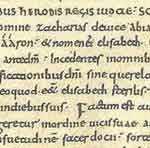 bus herodis regis iudeę s
omine zacharias deuice abia
aaron & nomen ei elisabeth
ante dm̄ incedentes in omnib
ficationibus dni sine querela
eo quod ess& elisabeth sterilis
in diebus suis Factum est au
in ordine uicis suae an
suetudinē sacerdotii forte